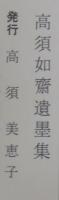 高須如齋遺墨集
発行 高須美恵子